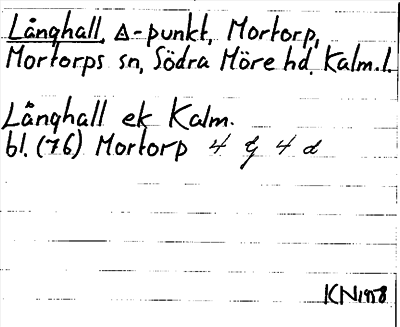 Långhall, △-punkt, Mortorp,
Mortorps sn, Södra Möre hd, Kalm. l.
Långhall ek Kalm.
bl. (76) Mortorp 4 G 4 d
KN1958